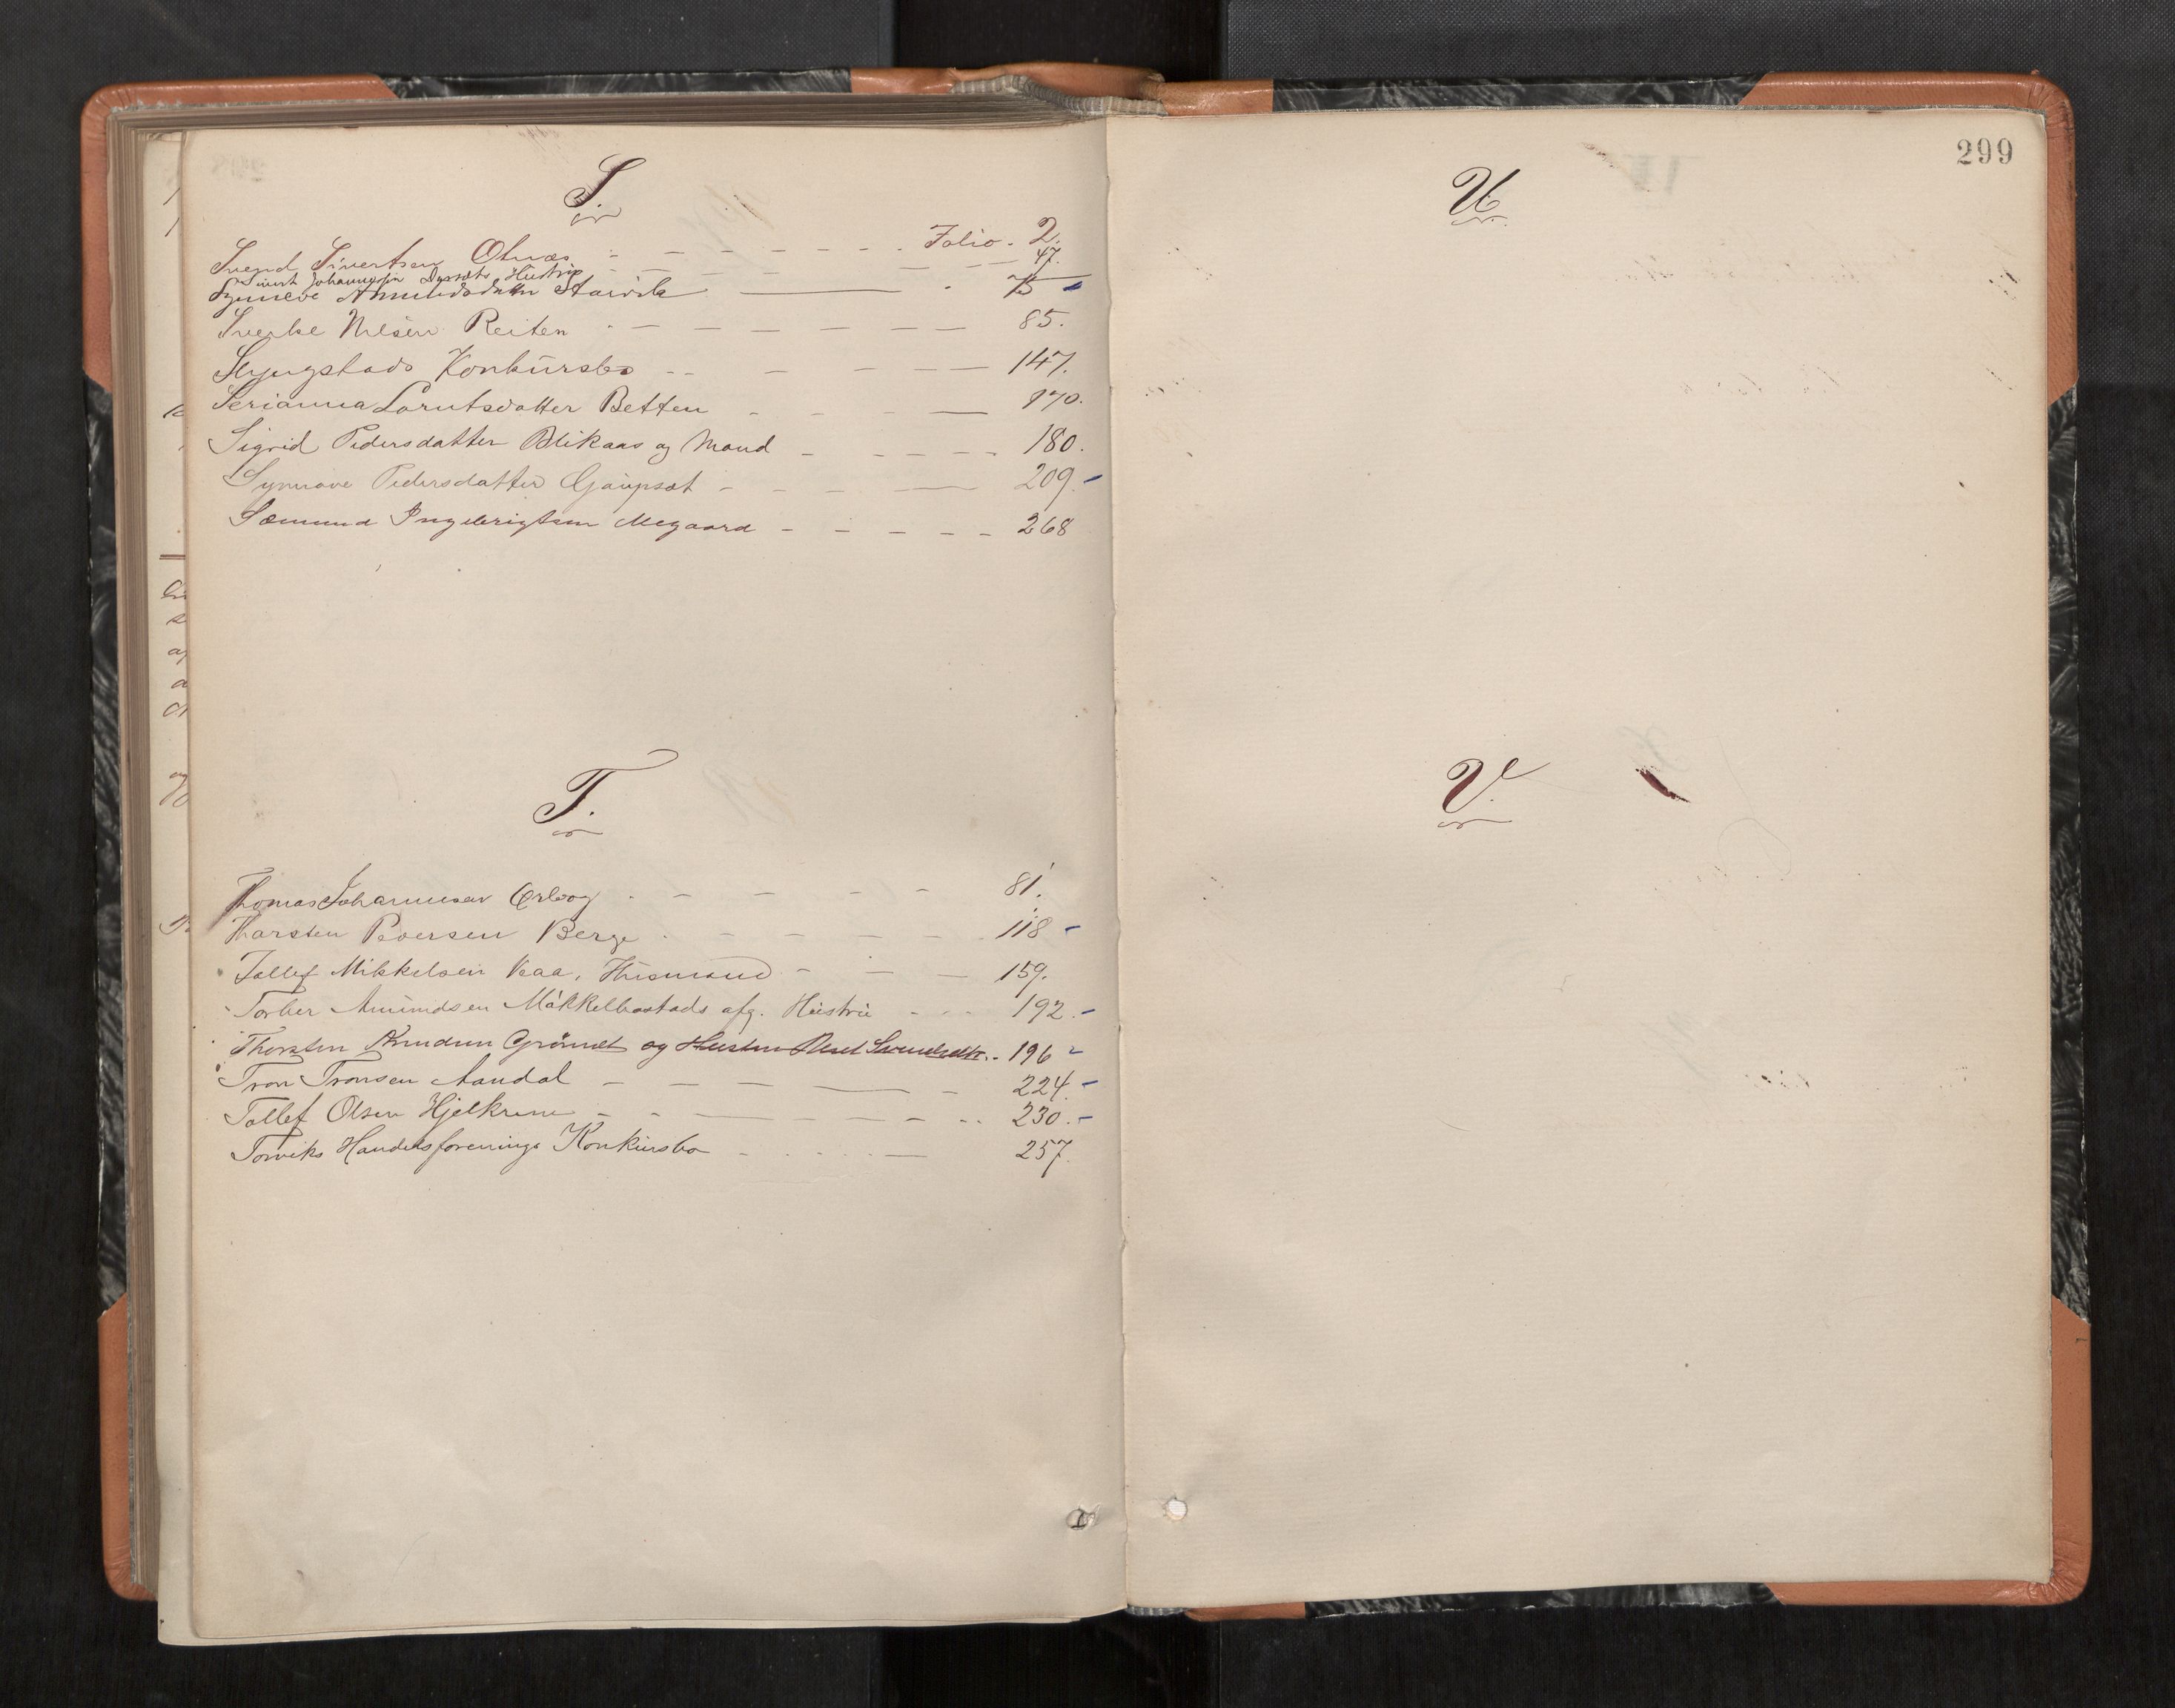 S.
Svend Sivertsen Olnæs - - - - - - - Folio. 2.
Sivert Johannessen Hustrip - - - 47.
Synneve Amundsdatter - 75 -
Sverke Nilsen Reiten - - - - - - - 85.
Slyngstads Konkursbo - - - - - 147.
Serianna Lorntsdatter Betten - - - - 170.
Sigrid Pedersdatter Blikaas og Mand - - - - - 180.
Synnove Pedersdatter Gaupset - - - - 209. -
Sæmund Ingebrigtsen Megaard - - - - - 268
T.
Thomas Johannesen - - - - - 81.
Tharsten Pedersen Berge - - - - - 118 -
Tollef Mikkelsen Vaa, Husmand - - - 159.
Torber Amundsen Mákkelbostads afg. Hustru - - - 192. -
Thorsten Knudsen og Hustru 196 -
Tron Tronsen Aandal - - - - - 224. -
Tollef Olsen Hjelkrem - - - - - - 230. -
Torviks Handelsforenings Konkursbo - - - - 257.
299
U.
V.